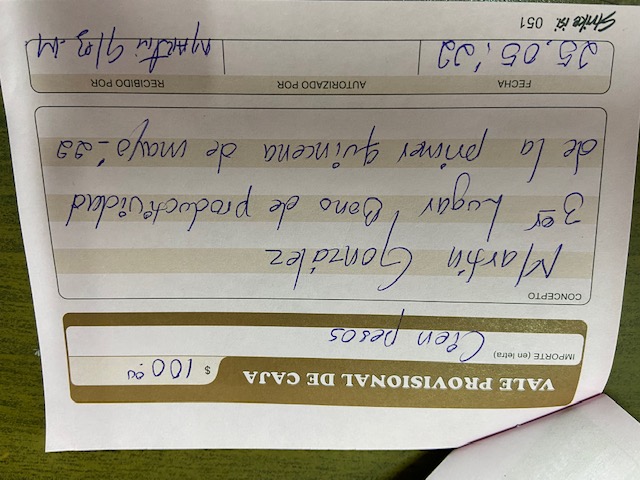 VALE PROVISIONAL DE CAJA
$ 100.00
IMPORTE (en letra) Cien pesos
CONCEPTO
Martín González
3er Lugar Bono de productividad
de la primer quincena de mayo-22
FECHA AUTORIZADO POR RECIBIDO POR
25.05.'22 Martin G/z. M
Strike ixi 051